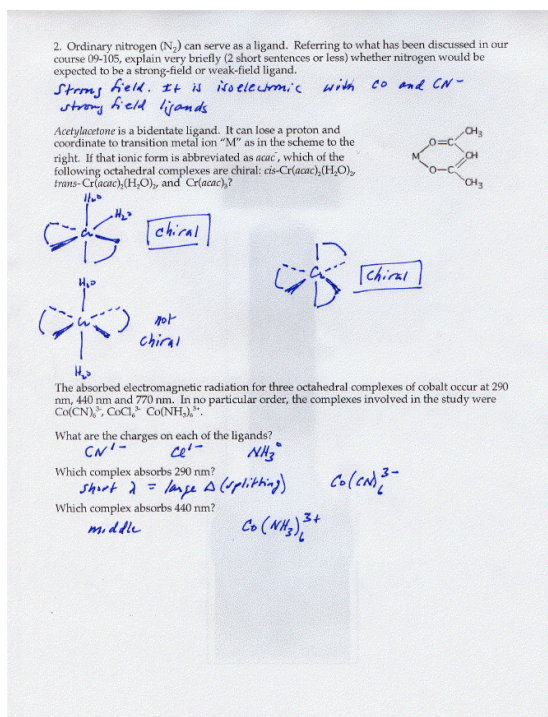 2. Ordinary nitrogen (N₂) can serve as a ligand. Referring to what has been discussed in our
course 09-105, explain very briefly (2 short sentences or less) whether nitrogen would be
expected to be a strong-field or weak-field ligand.
Strong field. It is isoelectronic with CO and CN⁻
strong field ligands
Acetylacetone is a bidentate ligand. It can lose a proton and
coordinate to transition metal ion "M" as in the scheme to the
right. If that ionic form is abbreviated as acac⁻, which of the
following octahedral complexes are chiral: cis-Cr(acac)₂(H₂O)₂,
trans-Cr(acac)₂(H₂O)₂, and Cr(acac)₃?
CH₃
O=C
M CH
O-C
CH₃
H₂O
H₂O
Cr
chiral
Cr
chiral
H₂O
Cr
not
chiral
H₂O
The absorbed electromagnetic radiation for three octahedral complexes of cobalt occur at 290
nm, 440 nm and 770 nm. In no particular order, the complexes involved in the study were
Co(CN)₆³⁻, CoCl₆³⁻ Co(NH₃)₆³⁺.
What are the charges on each of the ligands?
CN¹⁻ Cl¹⁻ NH₃⁰
Which complex absorbs 290 nm?
short λ = large Δ (splitting) Co(CN)₆³⁻
Which complex absorbs 440 nm?
middle Co(NH₃)₆³⁺